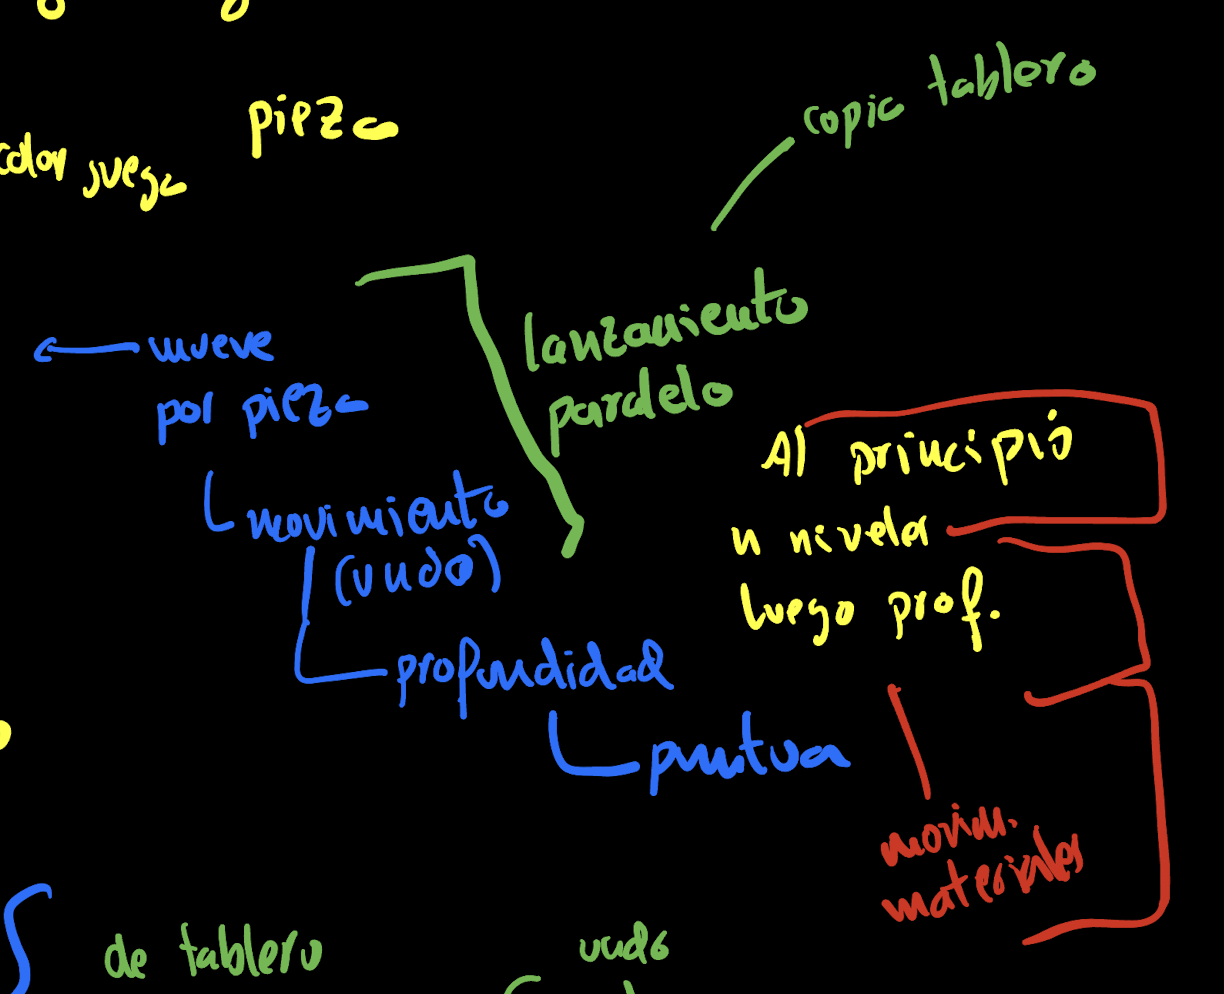 pieza
color juega
copia tablero
lanzamiento
paralelo
mueve
por pieza
movimiento
(nudo)
profundidad
puntua
Al principio
n niveles
luego prof.
movim.
materiales
de tablero
nudo